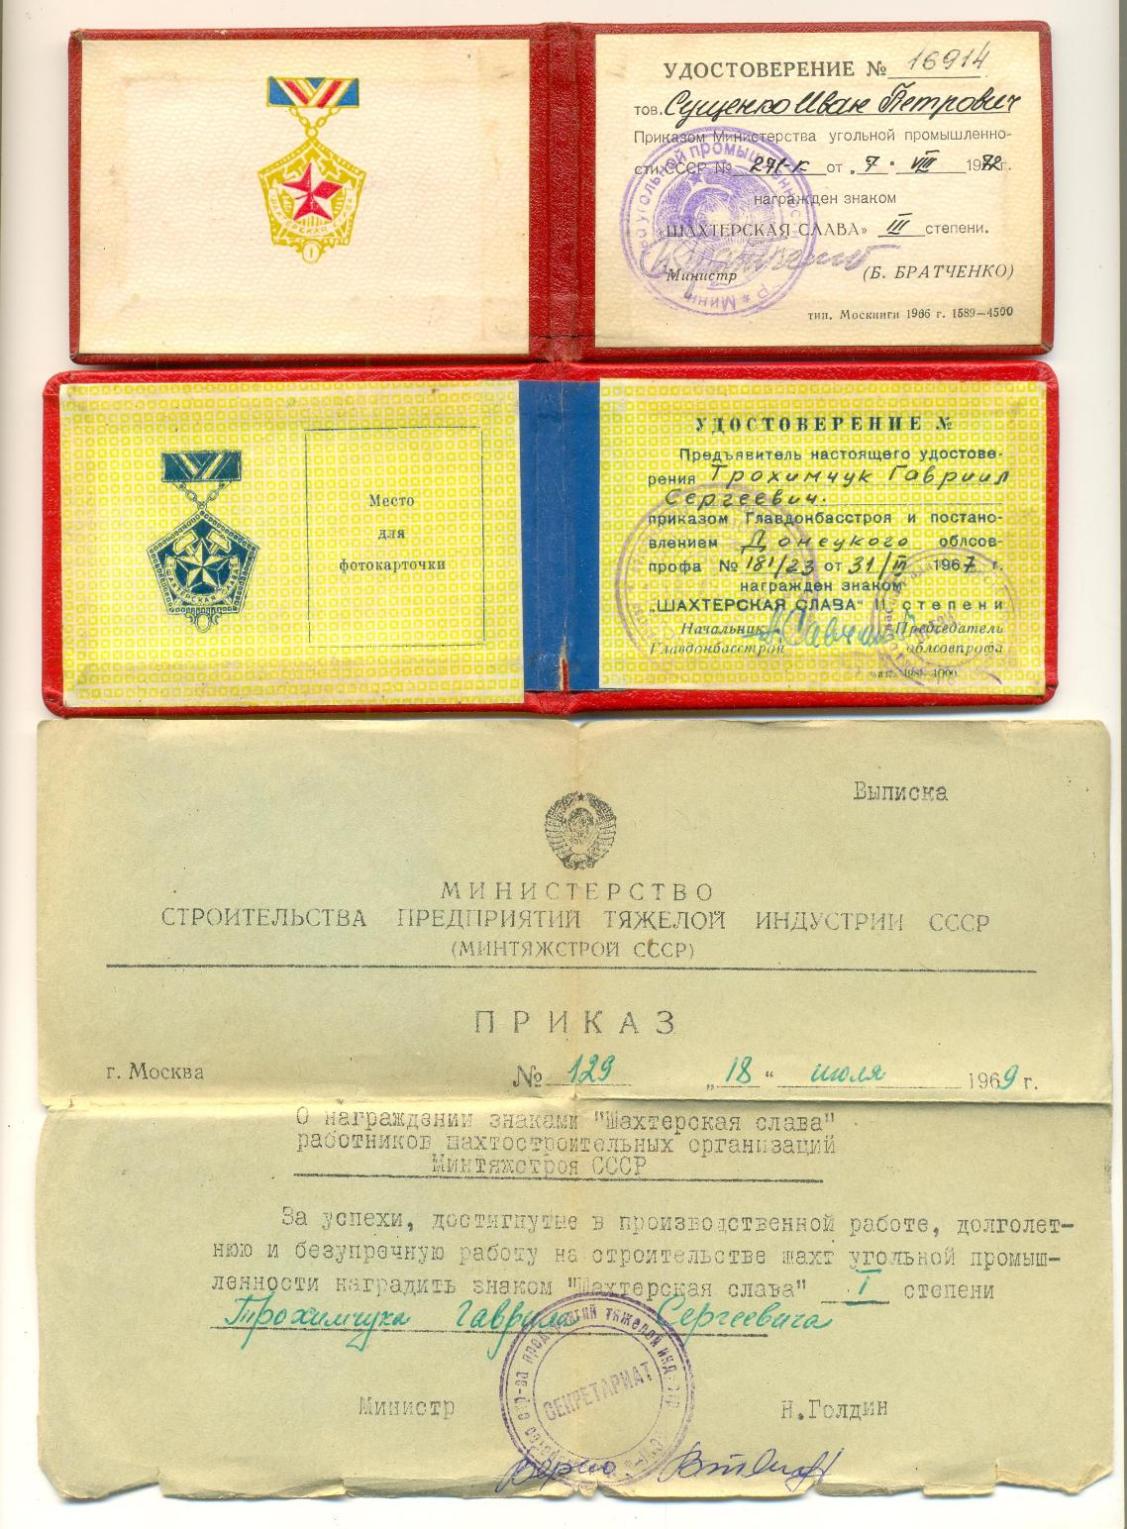 УДОСТОВЕРЕНИЕ № 16914
тов. Сущенко Иван Петрович
Приказом Министерства угольной промышленно-
сти СССР № 271-к от „7" VIII 1972г.
награжден знаком
„ШАХТЕРСКАЯ СЛАВА» III степени.
Министр (Б. БРАТЧЕНКО)
тип. Москниги 1966 г. 1589—4500
Место
для
фотокарточки
УДОСТОВЕРЕНИЕ №
Предъявитель настоящего удостове-
рения Трохимчук Гавриил
Сергеевич.
приказом Главдонбасстроя и постано-
влением Донецкого облсов-
профа № 181/23 от 31/III 1967 г.
награжден знаком
„ШАХТЕРСКАЯ СЛАВА" II степени
Начальник Председатель
Главдонбасстроя облсовпрофа
Выписка
МИНИСТЕРСТВО
СТРОИТЕЛЬСТВА ПРЕДПРИЯТИЙ ТЯЖЕЛОЙ ИНДУСТРИИ СССР
(МИНТЯЖСТРОЙ СССР)
ПРИКАЗ
г. Москва № 129 „18" июля 1969 г.
О награждении знаками "Шахтерская слава"
работников шахтостроительных организаций
Минтяжстроя СССР
За успехи, достигнутые в производственной работе, долголет-
нюю и безупречную работу на строительстве шахт угольной промыш-
ленности наградить знаком "Шахтерская слава" I степени
Трохимчука Гаврила Сергеевича
СЕКРЕТАРИАТ
Министр Н.Голдин
Верно